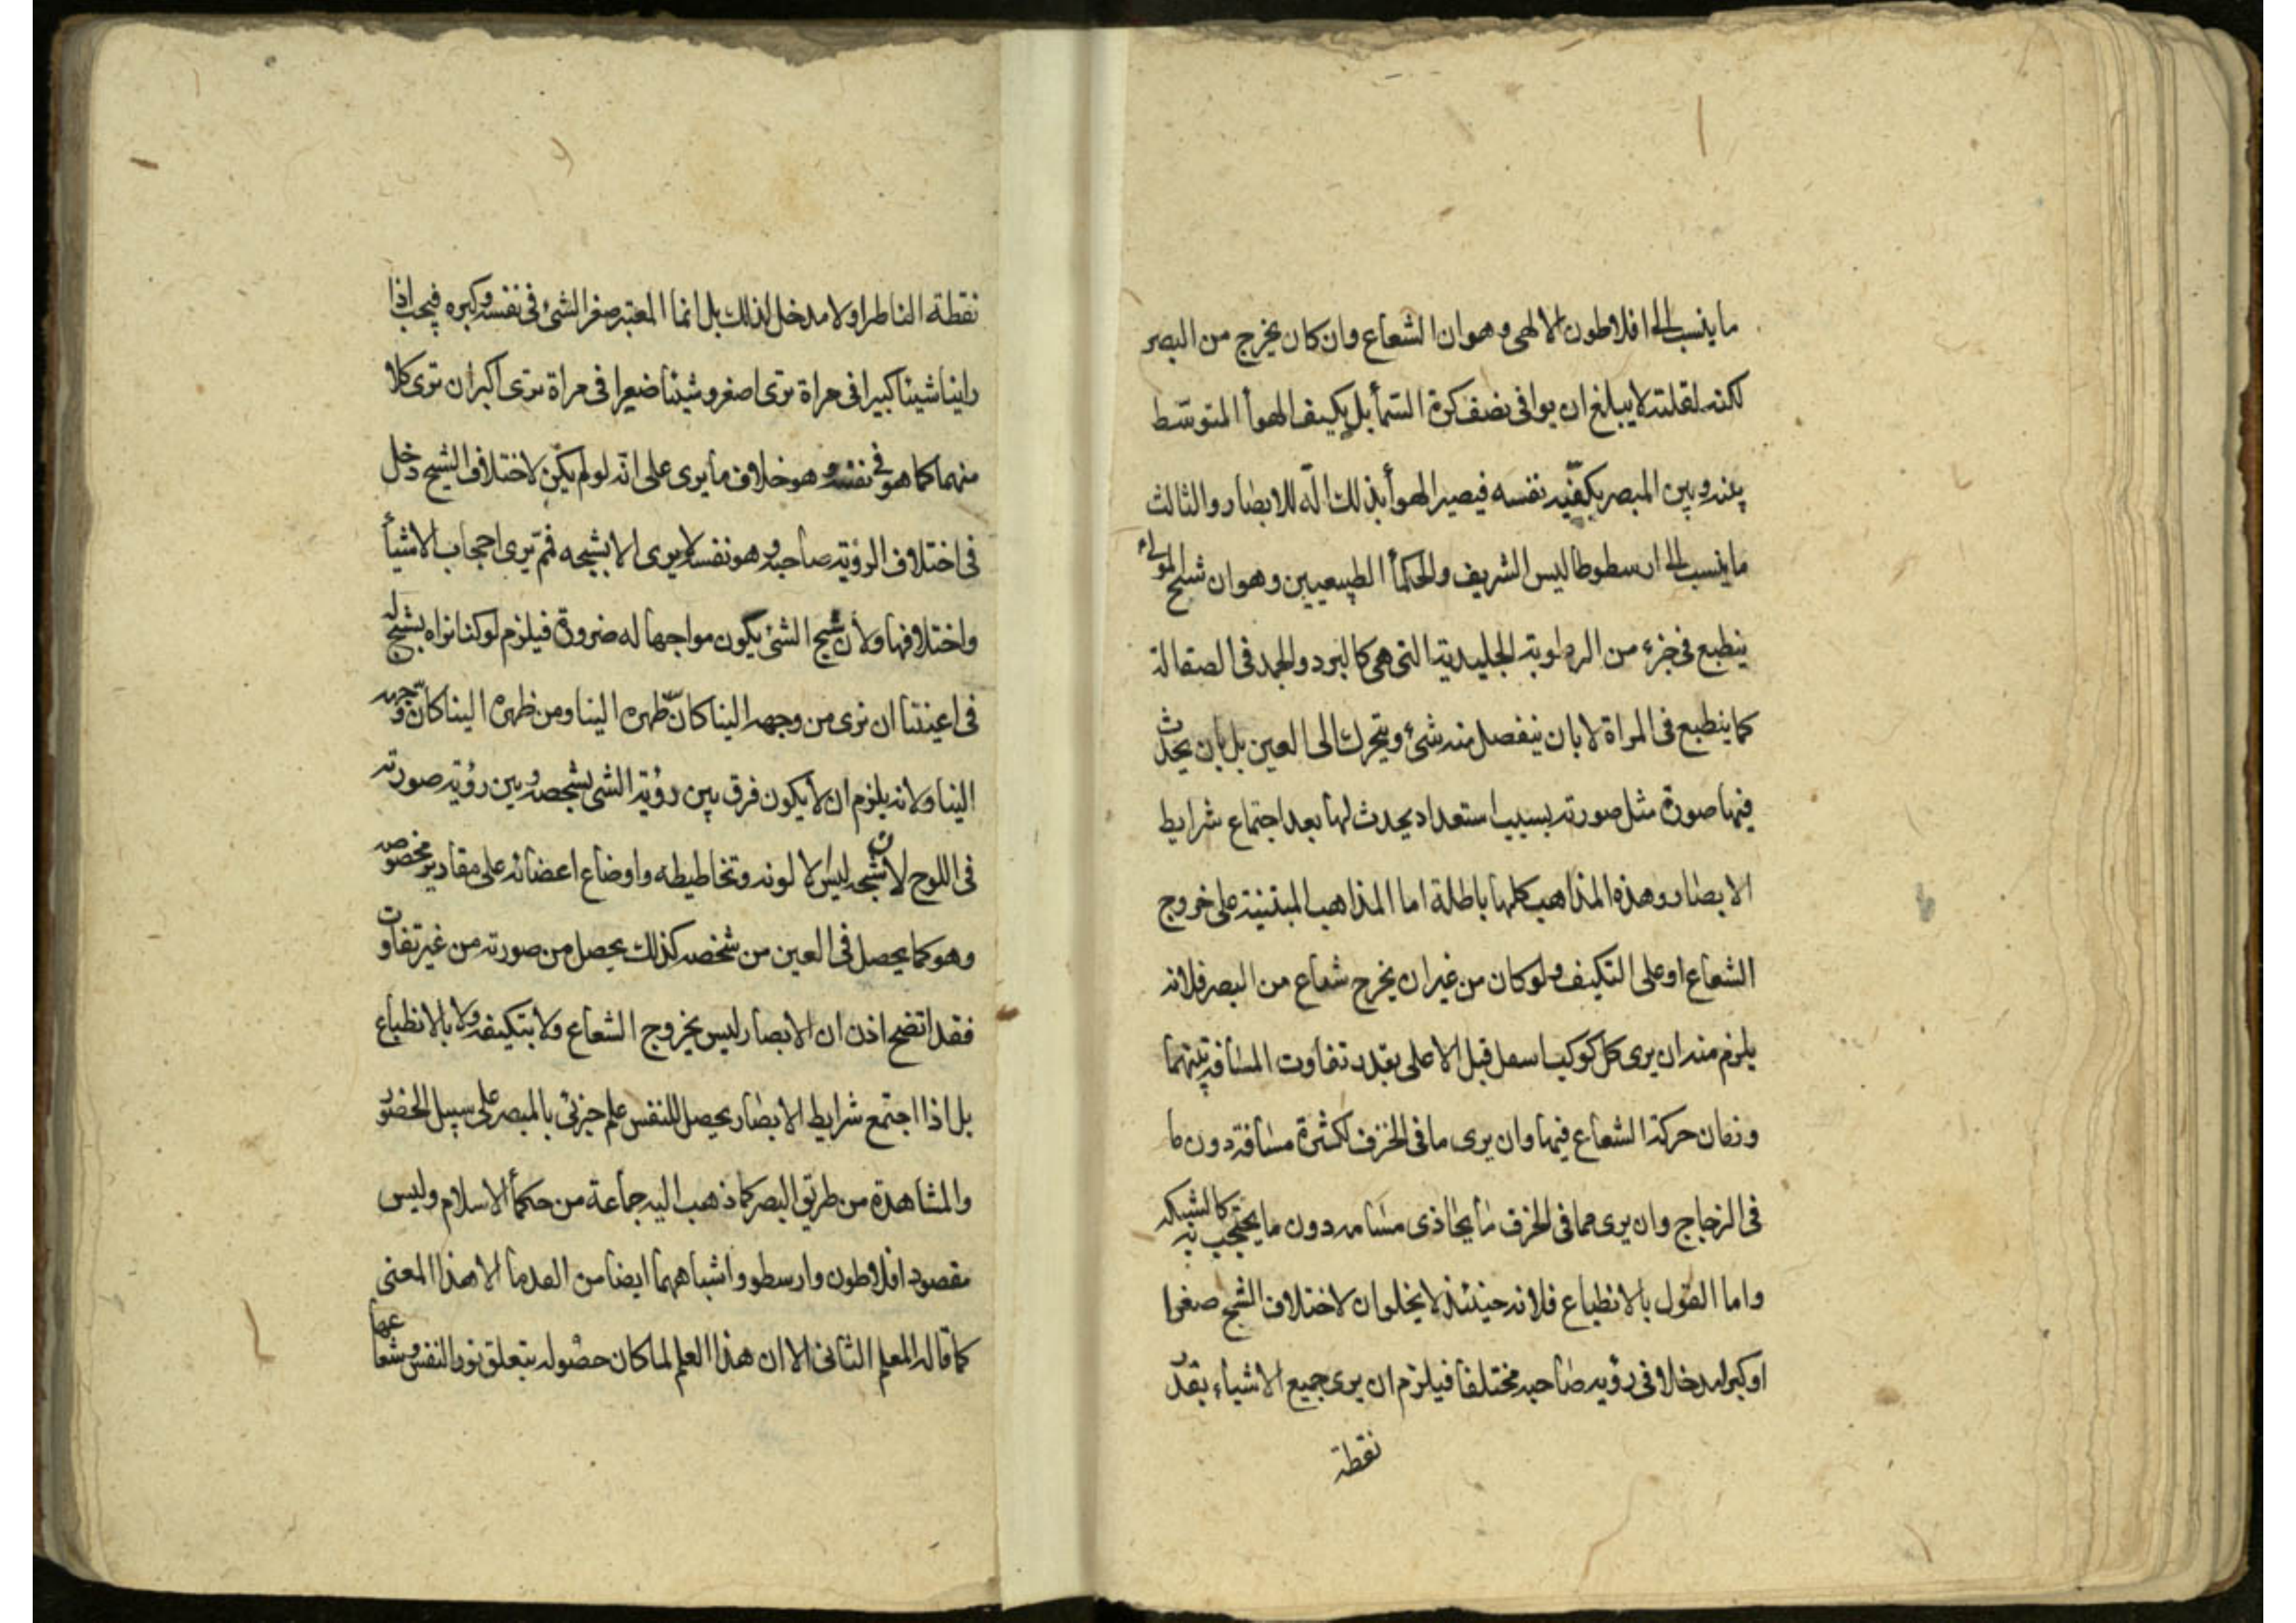 ما ينسب الى افلاطون الالهى وهو ان الشعاع وان كان يخرج من البصر
لكنه لقلته لا يبلغ ان يوافى نصف كرة السمأ بل يكيف الهوأ المتوسّط
بينه وبين المبصر بكيفيّه نفسه فيصير الهوأ بذلك الّة للابصار والثالث
ما ينسب الى ارسطوطاليس الشريف والحكمأ الطبيعيين وهو ان شبح المرئى
ينطبع فى جزء من الرطوبة الجليدية التى هى كالبرد والجمد فى الصقالة
كما ينطبع فى المراة لا بان ينفصل منه شئ ويتحرك الى العين بل بان يحدث
فيها صورة مثل صورته بسبب استعداد يحدث لها بعد اجتماع شرايط
الابصار وهذه المذاهب كلها باطلة اما المذاهب المبتنية على خروج
الشعاع او على التكيف ولو كان من غير ان يخرج شعاع من البصر فلانه
يلزم منه ان يرى كل كوكب اسفل قبل الاعلى بقدر تفاوت المسافة بينهما
وزمان حركة الشعاع فيها وان يرى ما فى الخزف لكثرة مسافة دون ما
فى الزجاج وان يرى مما فى الخزف ما يحاذى مسامه دون ما يحتجب به كالشبكه
واما القول بالانطباع فلانه حينئذ لا يخلو ان لاختلاف الشبح صغرا
او كبرا مدخلا فى رؤيه صاحبه مختلفا فيلزم ان يرى جميع الاشياء بقدر
نقطة
نقطة الناظر او لا مدخل لذلك بل انما المعتبر صغر الشئ فى نفسه وكبره فيجب اذا
راينا شيئا كبيرا فى مراة ترى اصغر وشيئا صغيرا فى مراة ترى اكبر ان ترى كلا
منهما كما هو فى نفسه وهو خلاف ما يرى على انّه لو لم يكن لاختلاف الشبح دخل
فى اختلاف الرؤية صاحبه وهو نفسه لا يرى الا بشبحه فمّ يرى احجاب الاشيأ
واختلافها ولأن شبح الشئ يكون مواجها له ضرورة فيلزم لو كنا نراه بشبح له
فى اعيننا ان نرى من وجهه الينا كانّ ظهره الينا ومن ظهره الينا كانّ وجهه
الينا ولانه يلزم ان لا يكون فرق بين رؤية الشى بشخصه وبين رؤية صورته
فى اللوح لان شبحه ليس الا لونه وتخاطيطه واوضاع اعضائه على مقادير مخصوصه
وهو كما يحصل فى العين من شخصه كذلك يحصل من صورته من غير تفاوت
فقد اتضح اذن ان الابصار ليس بخروج الشعاع ولا بتكيفه ولا بالانطباع
بل اذا اجتمع شرايط الابصار يحصل للنفس علم جزئى بالمبصر على سبيل الحضور
والمشاهدة من طريق البصر كما ذهب اليه جماعة من حكمأ الاسلام وليس
مقصود افلاطون وارسطو واشباههما ايضا من القدما الا هذا المعنى
كما قاله المعلم الثانى الا ان هذا العلم لما كان حصوله بتعلق نور النفس وشعاعها